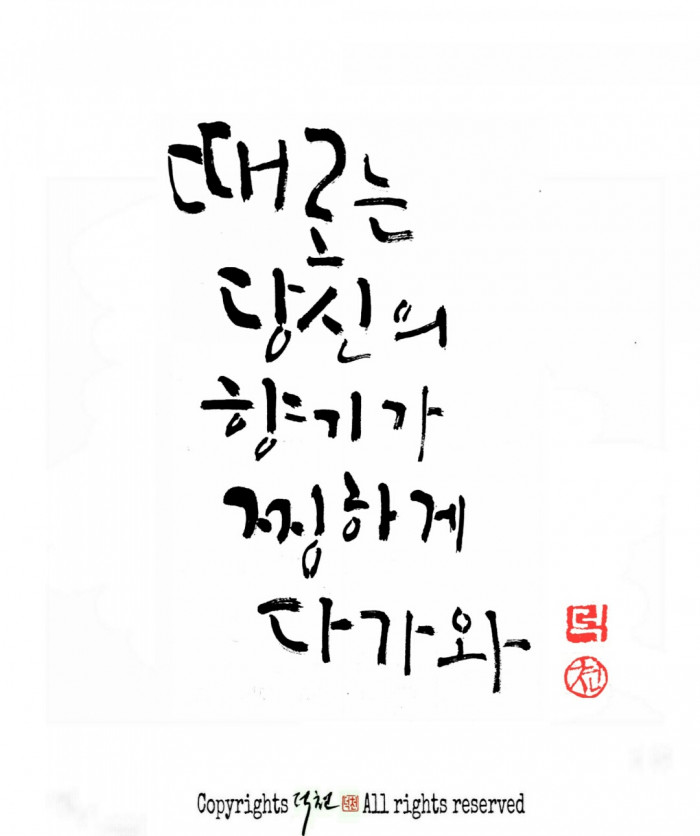 때로는
당신의
향기가
찡하게
다가와
덕
천
Copyrights 덕천 덕천 All rights reserved